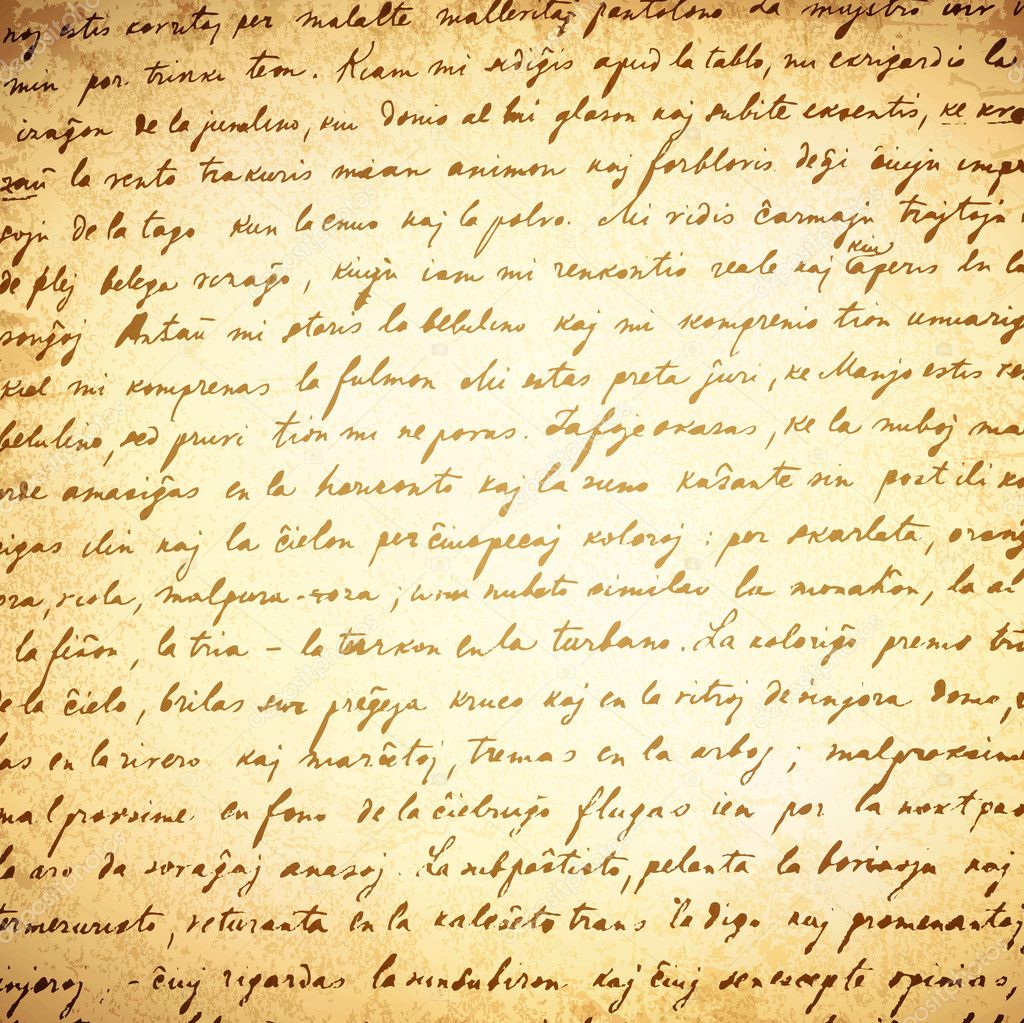 noj estis kovritaj per malalte mallevitaj pantolono da
min por trinki teon. Kiam mi sidiĝis apud la tablo, mi ekrigardis la
vizaĝon de la junulino, kiu donis al mi glason kaj subite eksentis, ke kva
zaŭ la vento trakuris mian animon kaj forbloris deĝi ĉiujn impr
sojn de la tago kun la enuo kaj la polvo. Mi vidis ĉarmajn trajtojn
de plej belega vizaĝo, kiujn iam mi renkontis reale kaj kiu aperis en la
sonĝoj Antaŭ mi staris la belulino kaj mi komprenis tion unuavig
kiel mi komprenas la fulmon Mi estas preta ĵuri, ke Manjo estis
belulino, sed pruvi tion mi ne povas. Iafoje okazas, ke la nuboj
orde amasiĝas en la horizonto kaj la suno kaŝante sin post ili ko
rigas ilin kaj la ĉielon per ĉiuspecaj koloroj : por skarlata, oranĝ
ora, viola, malpura-roza ; unu nubeto similas la monaĥon, la al
la fiŝon, la tria - la turkon en la turbano. La koloriĝo premis
de la ĉielo, brilas sur preĝeja kruco kaj en la vitroj de sinjora domo,
las en la rivero kaj marĉetoj, tremas en la arboj ; malproksime
malproksime en fono de la ĉielruĝo flugas ien por la noktpas
la aro da sovaĝaj anasoj. La subpaŝtisto, pelanta la bovinojn kaj
termezuristo, veturanta en la kaleŝeto trans la digo kaj promenantaj
sinjoroj. - ĉiuj rigardas la sunsubiron kaj ĉiuj senescepte opinias,